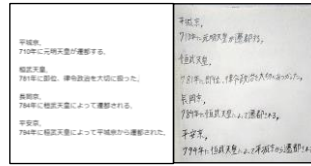 平城京、
710年に元明天皇が遷都する。
桓武天皇、
781年に即位、律令政治を大切に扱った。
長岡京、
784年に桓武天皇によって遷都される。
平安京、
794年に桓武天皇によって平城京から遷都された。
平城京、
710年に元明天皇が遷都する。
桓武天皇、
781年に即位、律令政治を大切にあつかった。
長岡京、
784年に桓武天皇によって遷都される。
平安京、
794年に桓武天皇によって平城京から遷都された